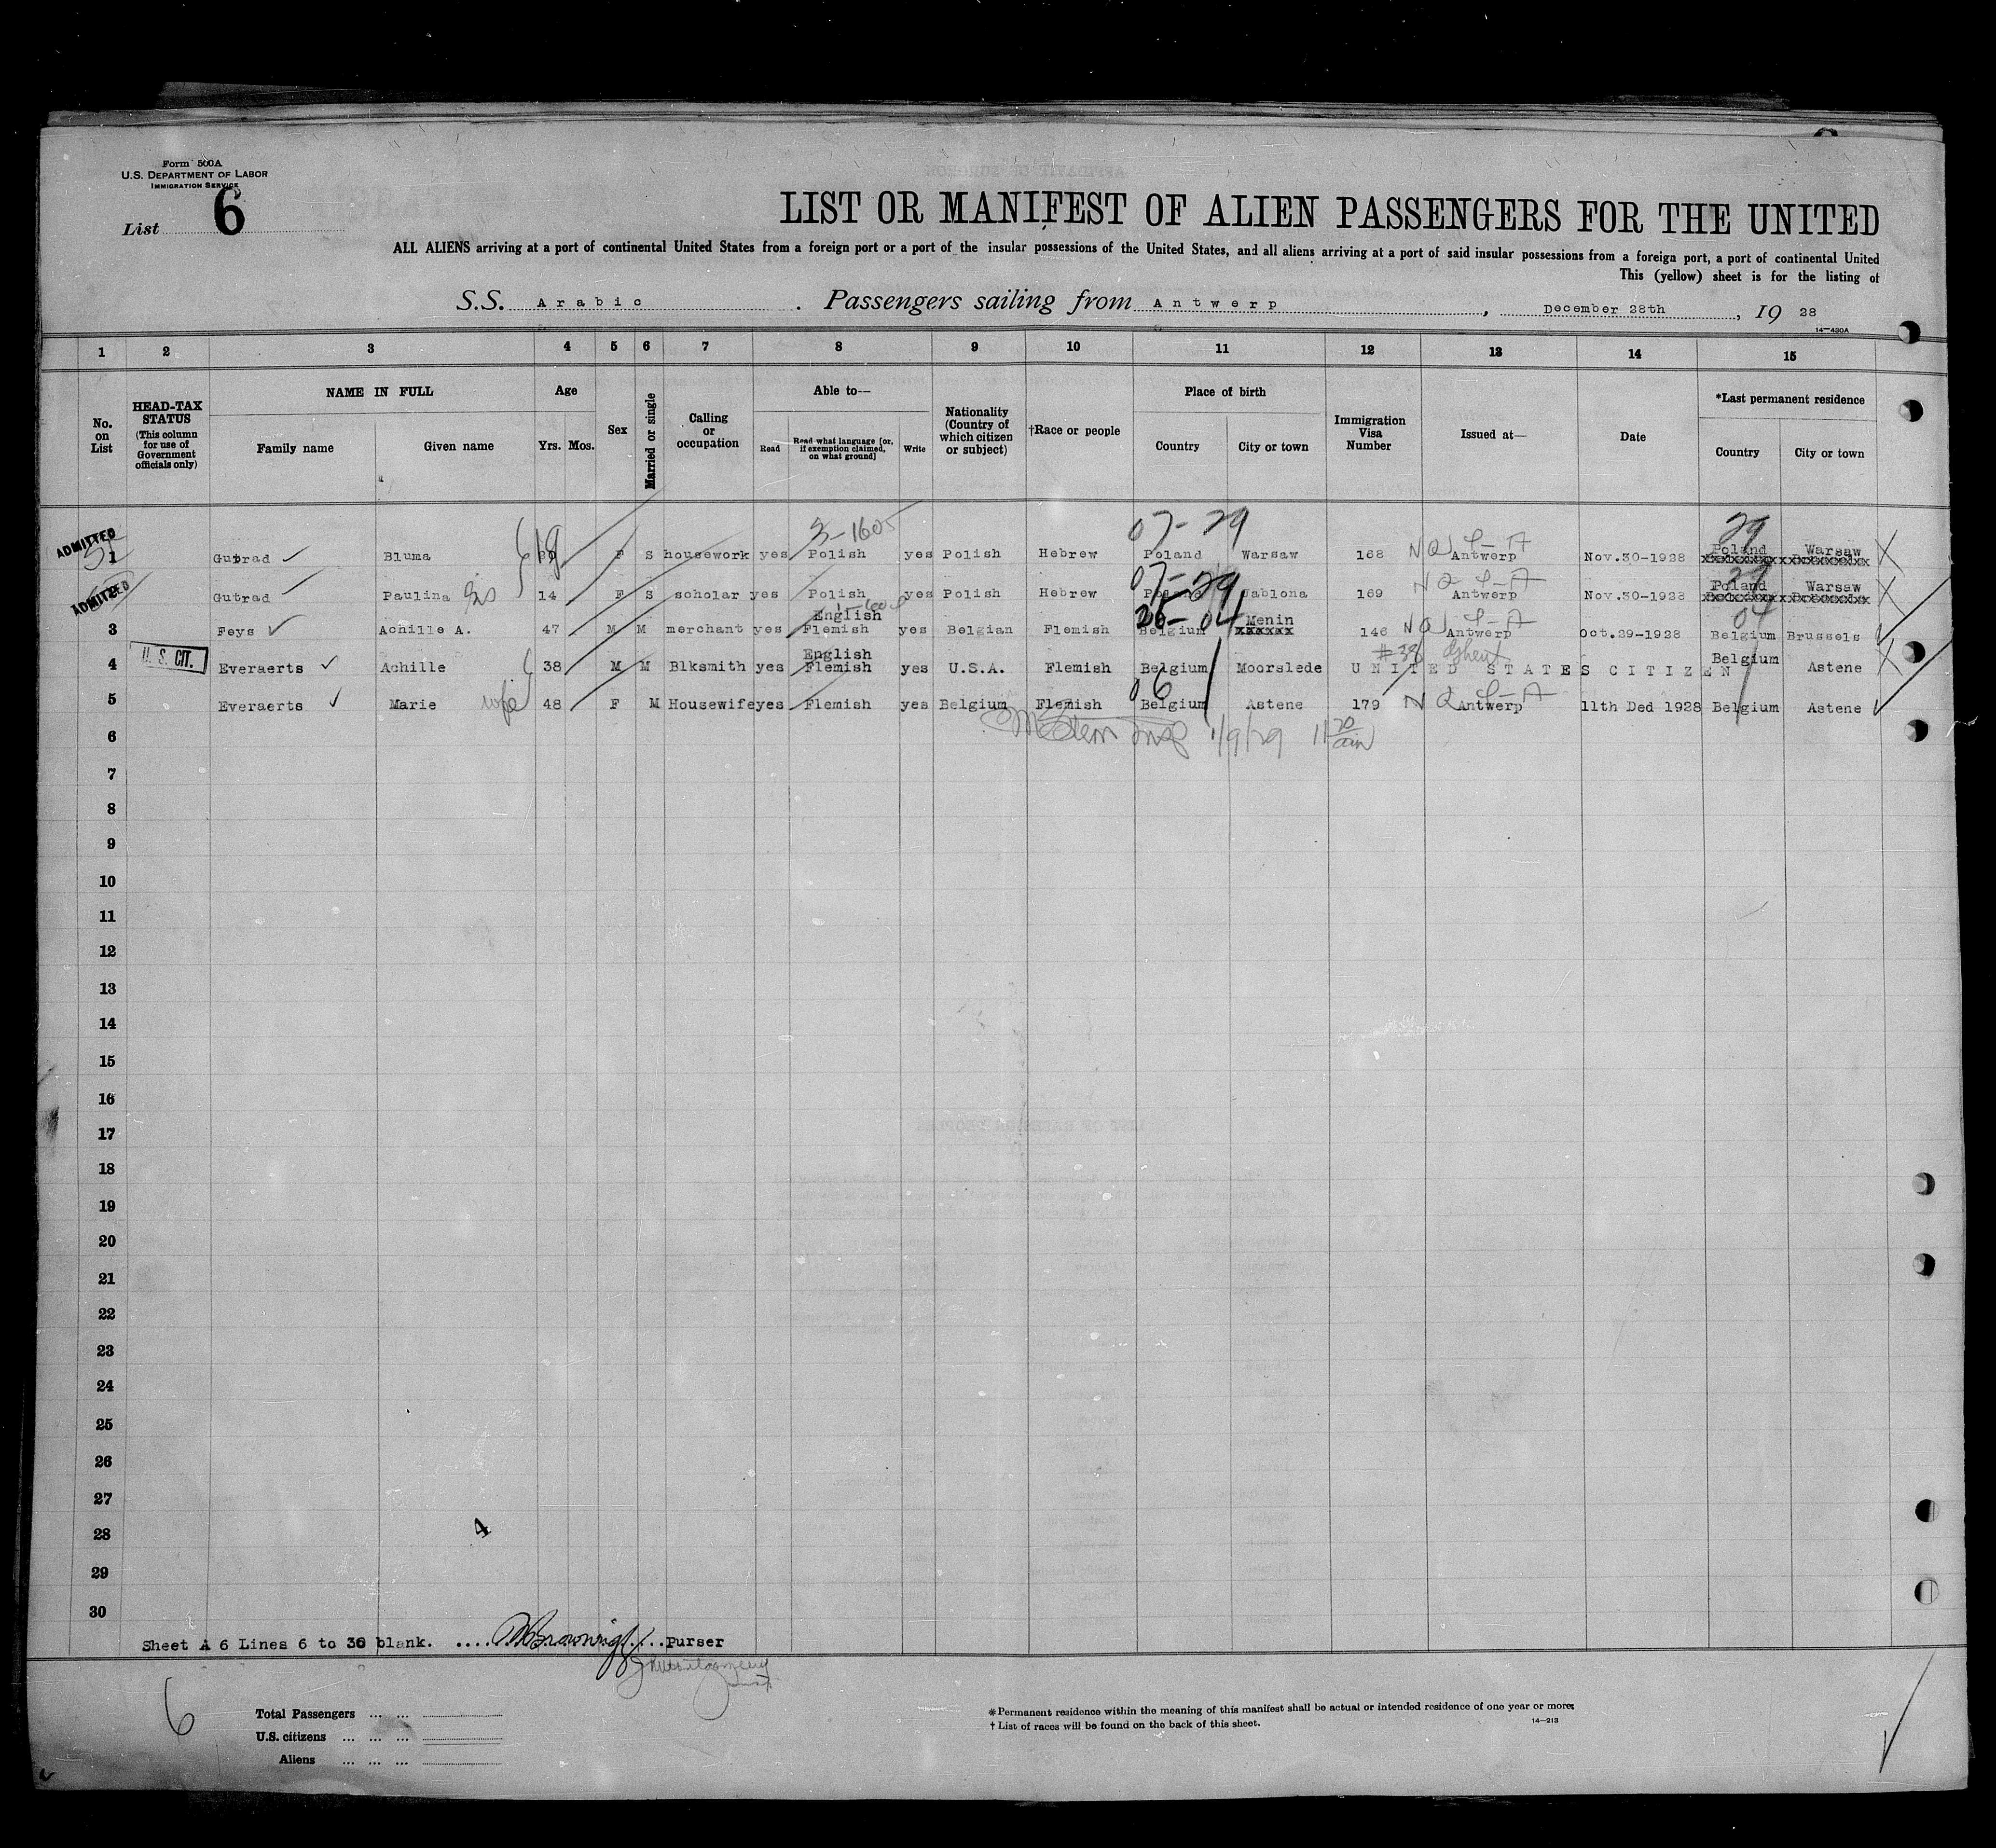 Form 500A
U.S. DEPARTMENT OF LABOR
IMMIGRATION SERVICE
List 6
LIST OR MANIFEST OF ALIEN PASSENGERS FOR THE UNITED
ALL ALIENS arriving at a port of continental United States from a foreign port or a port of the insular possessions of the United States, and all aliens arriving at a port of said insular possessions from a foreign port, a port of continental United
This (yellow) sheet is for the listing of
S.S. Arabic . Passengers sailing from Antwerp , December 28th , 19 28
14—430A
1 2 3 4 5 6 7 8 9 10 11 12 13 14 15
No. on List
HEAD-TAX STATUS (This column for use of Government officials only)
NAME IN FULL
Family name Given name
Age
Yrs. Mos.
Sex
Married or single
Calling or occupation
Able to—
Read Read what language [or, if exemption claimed, on what ground] Write
Nationality (Country of which citizen or subject)
†Race or people
Place of birth
Country City or town
Immigration Visa Number
Issued at—
Date
*Last permanent residence
Country City or town
3-1605 07-29 29
ADMITTED 1 Gutrad Bluma 19 F S housework yes Polish yes Polish Hebrew Poland Warsaw 168 NQ Antwerp Nov.30-1928 Poland Warsaw
07-29 29
ADMITTED Gutrad Paulina sis 14 F S scholar yes Polish yes Polish Hebrew Poland Jablona 169 NQ Antwerp Nov.30-1928 Poland Warsaw
English 04 Menin 04
3 Feys Achille A. 47 M M merchant yes Flemish yes Belgian Flemish Belgium xxxxxx 146 NQ Antwerp Oct.29-1928 Belgium Brussels
U.S. CIT. English #38 Ghent Belgium
4 Everaerts Achille 38 M M Blksmith yes Flemish yes U.S.A. Flemish Belgium Moorslede UNITED STATES CITIZEN Astene
06
5 Everaerts Marie wife 48 F M Housewife yes Flemish yes Belgium Flemish Belgium Astene 179 NQ Antwerp 11th Ded 1928 Belgium Astene
6 Insp 1/9/29 11 20 am
7
8
9
10
11
12
13
14
15
16
17
18
19
20
21
22
23
24
25
26
27
28 4
29
30
Sheet A 6 Lines 6 to 30 blank. .... .... Purser
6
Total Passengers ... ...
U.S. citizens ... ... ...
Aliens ... ... ...
*Permanent residence within the meaning of this manifest shall be actual or intended residence of one year or more.
†List of races will be found on the back of this sheet. 14—213